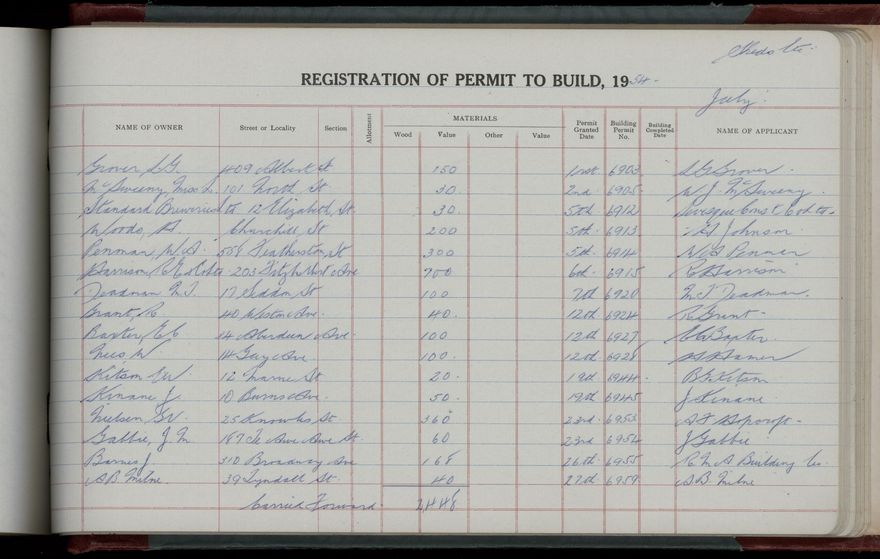 Sheds etc.
REGISTRATION OF PERMIT TO BUILD, 1954.
July.
NAME OF OWNER Street or Locality Section Allotment MATERIALS Permit Granted Date Building Permit No. Building Completed Date NAME OF APPLICANT
Wood Value Other Value
Grover, S.G. 409 Albert St 150 1st 6903 S.G. Grover.
McSweeny, Miss 101 North St 30. 2nd 6905 W J McSweeny.
Standard Breweries Ltd 12 Elizabeth St. 30. 5th 6912 Const. Co Ltd.
Woods, A. Churchill St 200 5th 6913 Johnson
Penman, W.A. 558 Featherston St 300 5th 6914 Penman
Harrison, 203 Fitzherbert Ave 700 6th 6915 Harrison
Deadman M.J. 17 Seddon St 100 7th 6920 M.J. Deadman.
Grant, R. 40 Weston Ave. 40. 12th 6924 R Grant
Baxter, E.C. 14 Aberdeen Ave. 100 12th 6927 Baxter
W. 14 Guy Ave 100. 12th 6928 Hamer
Kitson 12 Marne St 20. 19th 6944. Kitson
Kinane J. 10 Burns Ave. 50. 19th 6945 J Kinane
Nielsen 25 Knowles St 360 23rd. 6953 Hopcroft
Gabbie, J.M. 187 Te Awe Awe St. 60 23rd 6954 J Gabbie
Barnes J 310 Broadway Ave 168 26th 6955 R.M.A Building Co.
A.B. Milne 39 Lyndall St. 40 27th 6959 A.B. Milne
Carried Forward. 2,448